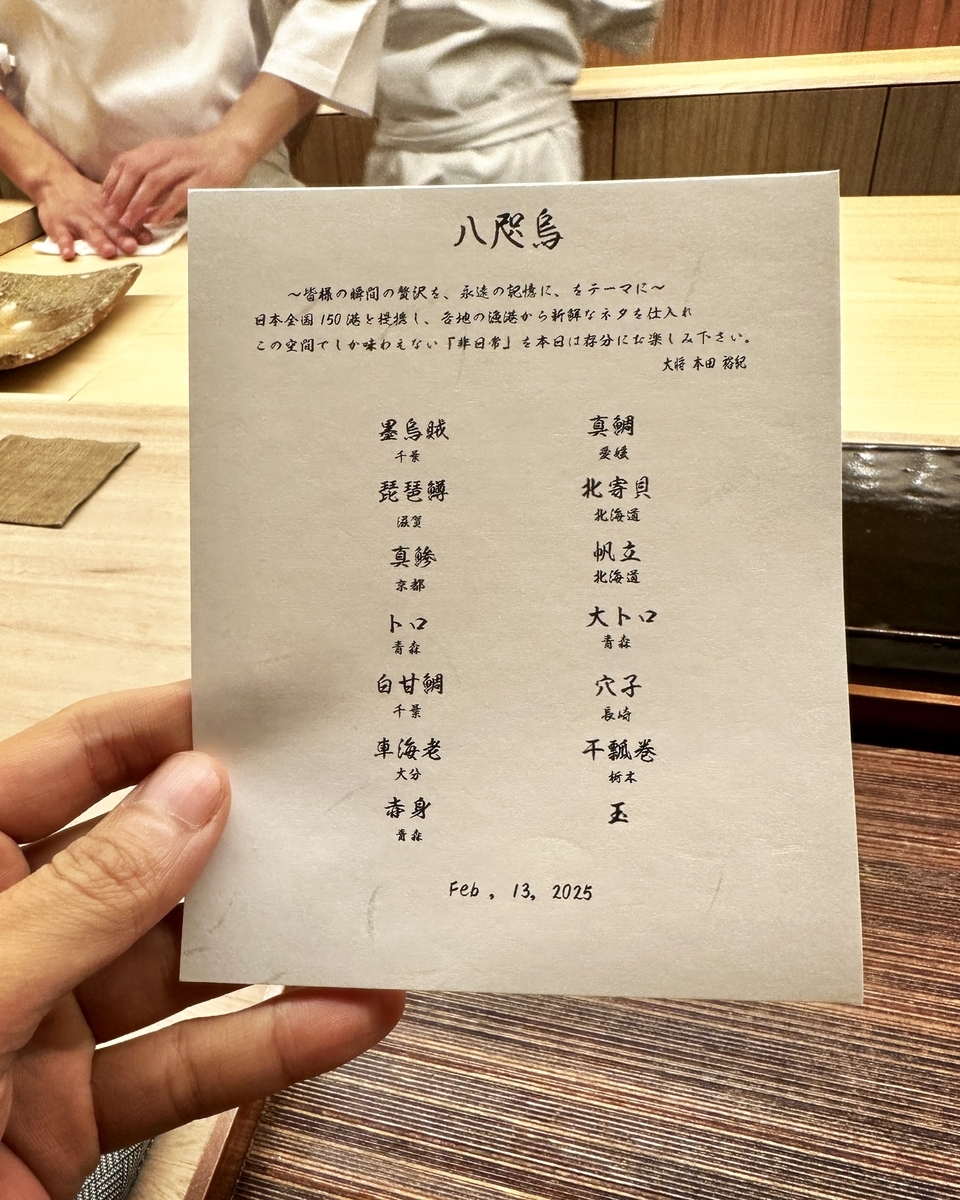 八咫烏
〜皆様の瞬間の贅沢を、永遠の記憶に、をテーマに〜
日本全国150港と提携し、各地の漁港から新鮮なネタを仕入れ
この空間でしか味わえない『非日常』を本日は存分にお楽しみ下さい。
大将 本田 裕紀
墨烏賊
千葉
琵琶鱒
滋賀
真鰺
京都
トロ
青森
白甘鯛
千葉
車海老
大分
赤身
青森
真鯛
愛媛
北寄貝
北海道
帆立
北海道
大トロ
青森
穴子
長崎
干瓢巻
栃木
玉
Feb , 13, 2025